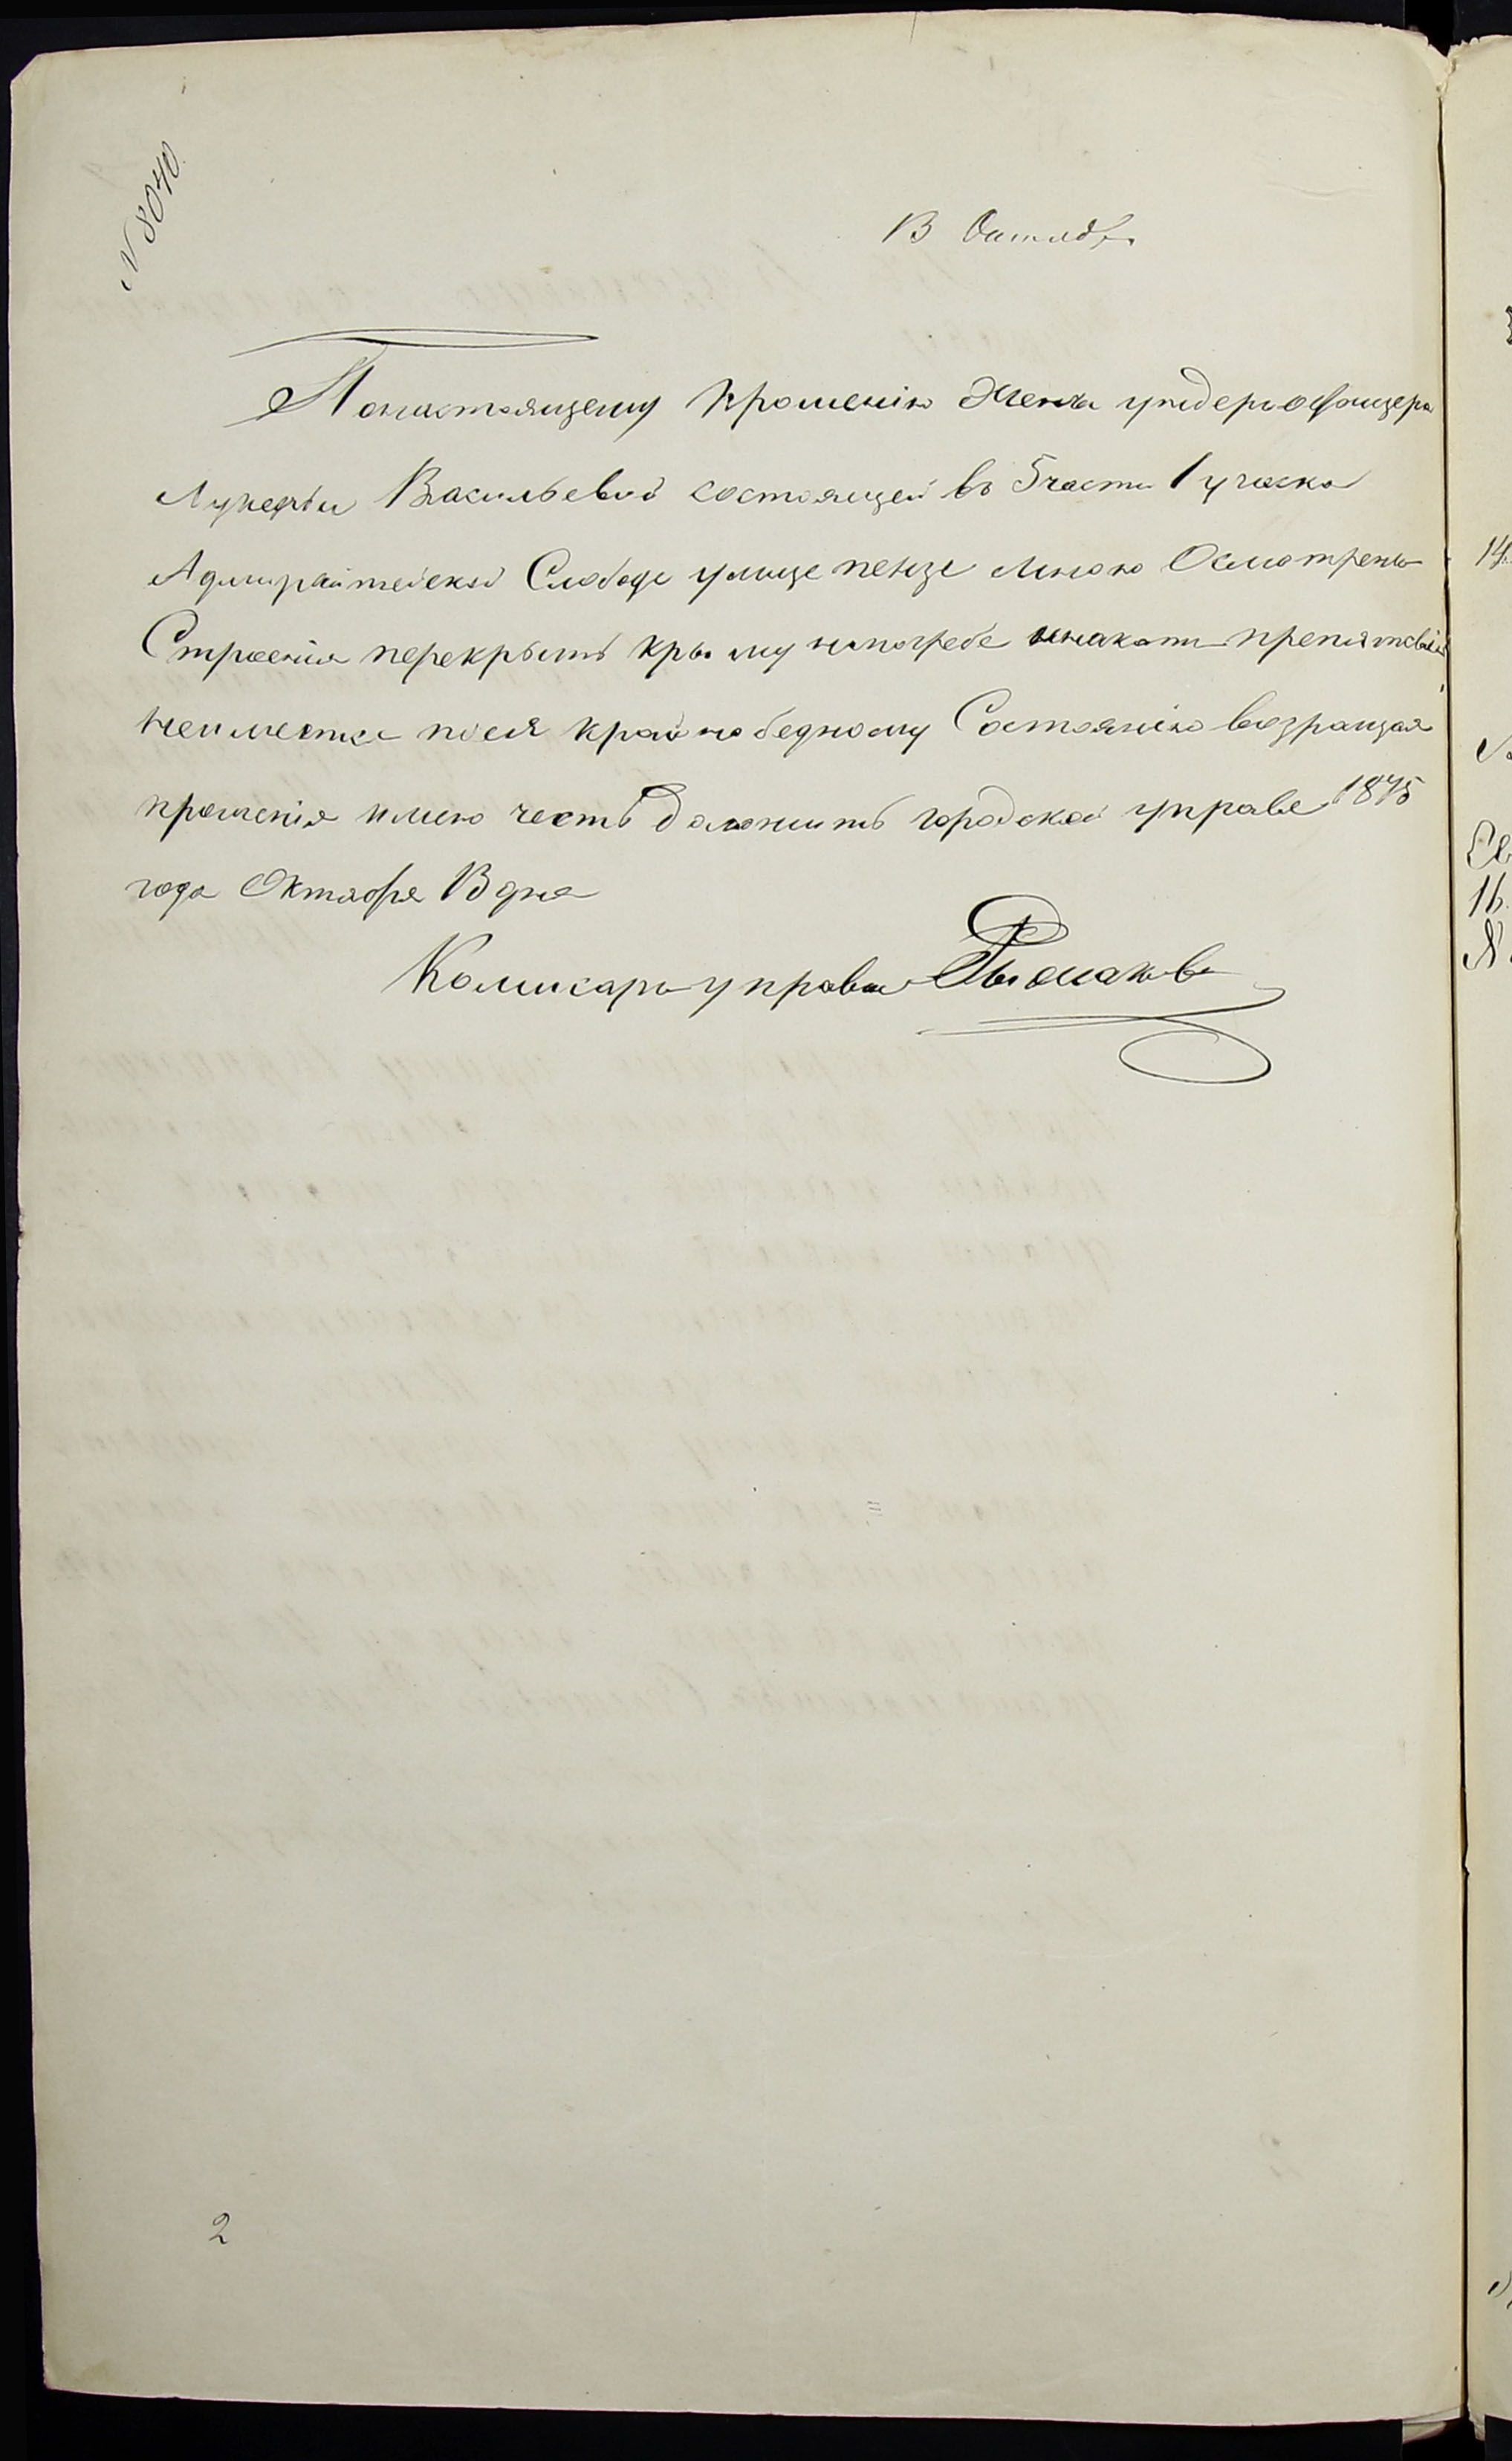 N 8040
13 Октября
Понастоящему прошенію Жены ундеръофицера
Лукерьи Васильевой состоящей въ 5 части 1 учаска
Адмиралтейской Слободе улице пензе мною Осмотрены
Строения перекрыть крышу напогребе никакихъ препятсвій
неимеется после крайно бедному Состоянію возращая
прошенія имею честь доложить городской управе 1875
года Октября 13 дня
Комисаръ управы
2